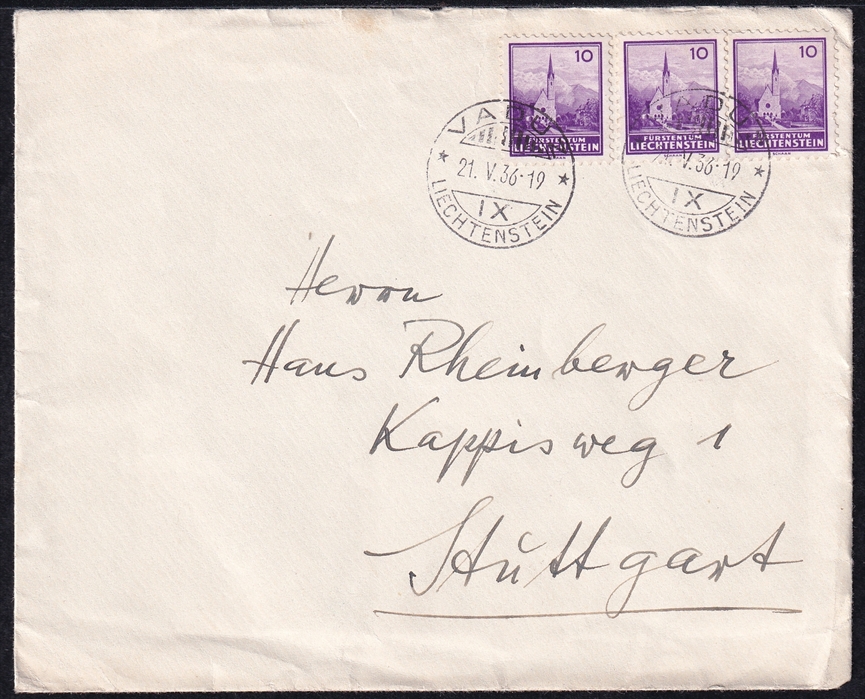 10
10
10
FÜRSTENTUM
LIECHTENSTEIN
FÜRSTENTUM
LIECHTENSTEIN
FÜRSTENTUM
LIECHTENSTEIN
SCHAAN
VADUZ
21. V. 36-19
IX
LIECHTENSTEIN
VADUZ
21. V. 36-19
IX
LIECHTENSTEIN
Herrn
Hans Rheinberger
Kappisweg 1
Stuttgart